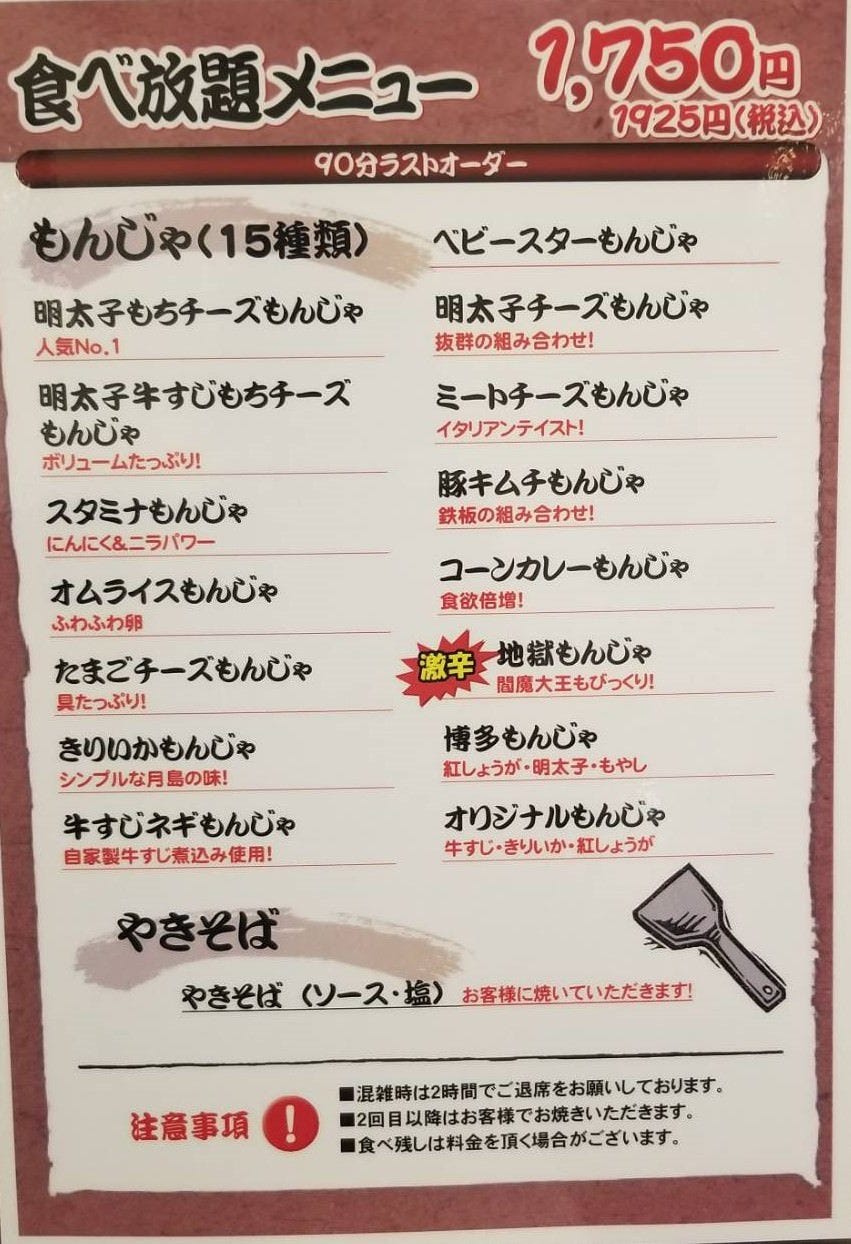 食べ放題メニュー
1,750円
1925円(税込)
90分ラストオーダー
もんじゃ(15種類)
明太子もちチーズもんじゃ
人気No.1
明太子牛すじもちチーズ
もんじゃ
ボリュームたっぷり!
スタミナもんじゃ
にんにく&ニラパワー
オムライスもんじゃ
ふわふわ卵
たまごチーズもんじゃ
具たっぷり!
きりいかもんじゃ
シンプルな月島の味!
牛すじネギもんじゃ
自家製牛すじ煮込み使用!
ベビースターもんじゃ
明太子チーズもんじゃ
抜群の組み合わせ!
ミートチーズもんじゃ
イタリアンテイスト!
豚キムチもんじゃ
鉄板の組み合わせ!
コーンカレーもんじゃ
食欲倍増!
激辛
地獄もんじゃ
閻魔大王もびっくり!
博多もんじゃ
紅しょうが・明太子・もやし
オリジナルもんじゃ
牛すじ・きりいか・紅しょうが
やきそば
やきそば (ソース・塩) お客様に焼いていただきます!
注意事項
■混雑時は2時間でご退席をお願いしております。
■2回目以降はお客様でお焼きいただきます。
■食べ残しは料金を頂く場合がございます。